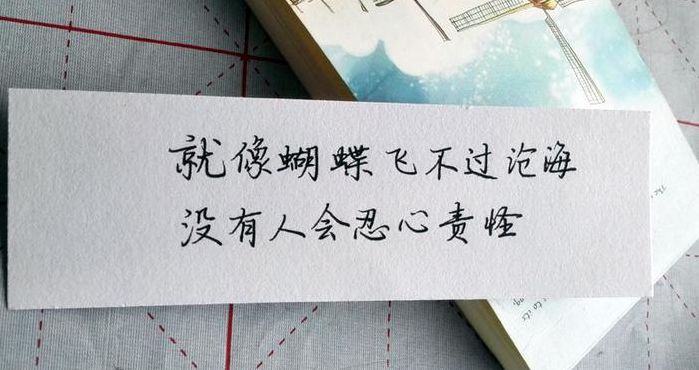 就像蝴蝶飞不过沧海
没有人会忍心责怪